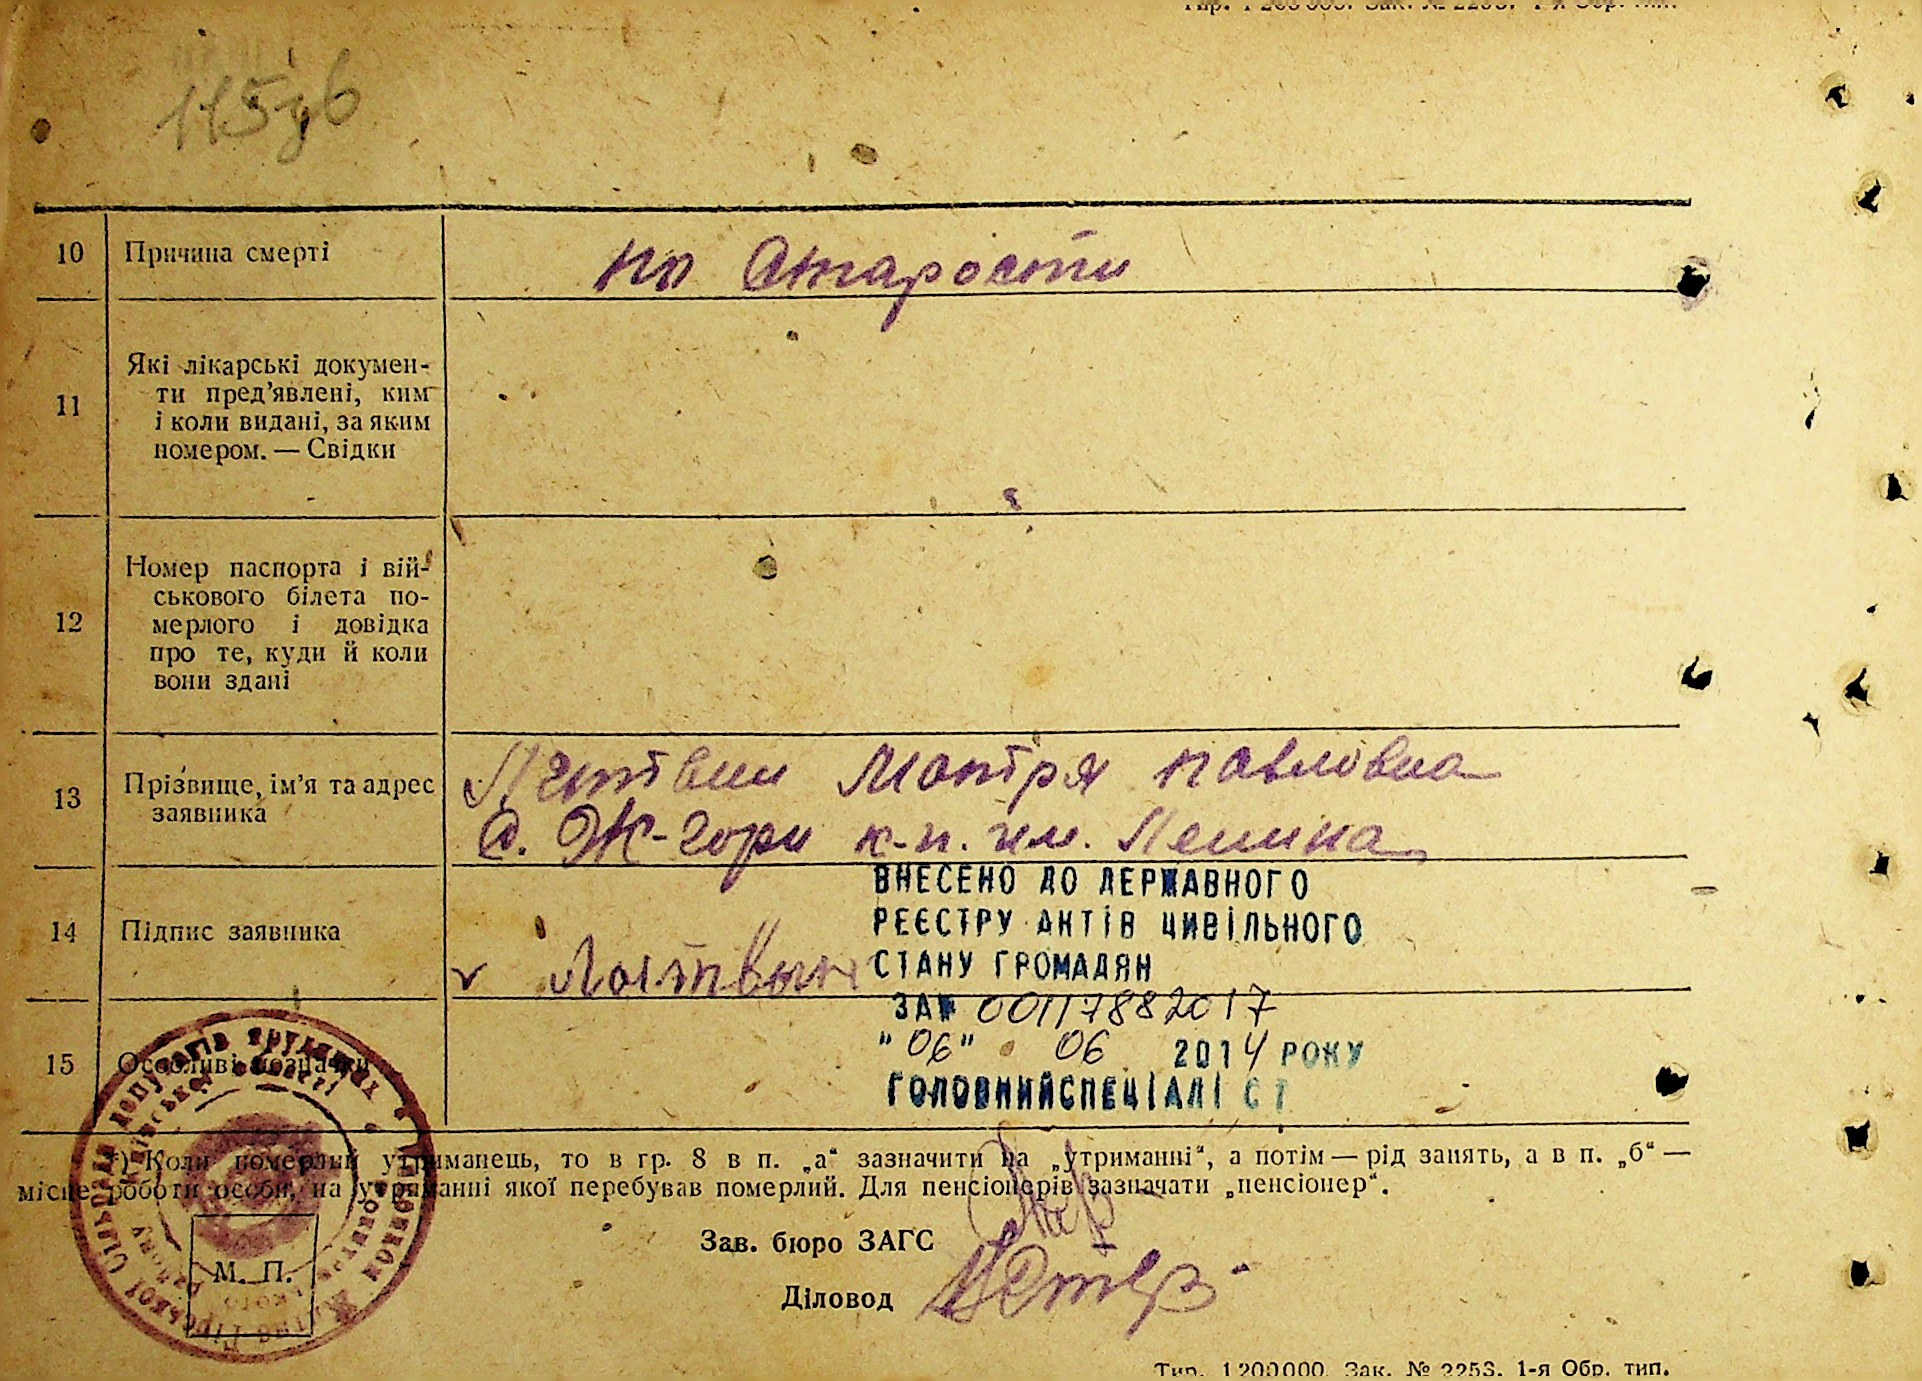 115зв
10 Причина смерті по Старости
11 Які лікарські докумен-
ти пред’явлені, ким
і коли видані, за яким
номером. — Свідки
12 Номер паспорта і вій-
ськового білета по-
мерлого і довідка
про те, куди й коли
вони здані
13 Прізвище, ім’я та адрес
заявника
Литвин Мотря Павлівна
с. Ж-Гори к-п. им. Ленина
14 Підпис заявника
ВНЕСЕНО ДО ДЕРЖАВНОГО
РЕЄСТРУ АКТІВ ЦИВІЛЬНОГО
СТАНУ ГРОМАДЯН
ЗА№ 00117882017
"06" 06 2014 РОКУ
ГОЛОВНИЙ СПЕЦІАЛІСТ
15 Особливі позначки
*) Коли померлий утриманець, то в гр. 8 в п. „а“ зазначити на „утриманні“, а потім — рід занять, а в п. „б“ —
місце роботи особи, на утриманні якої перебував померлий. Для пенсіонерів зазначати „пенсіонер“.
Зав. бюро ЗАГС
М. П.
Діловод
Тир. 1200000. Зак. № 2253. 1-я Обр. тип.